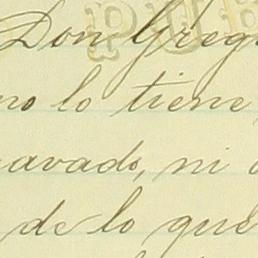 Don Greg
no lo tiene
avado, ni
de lo que